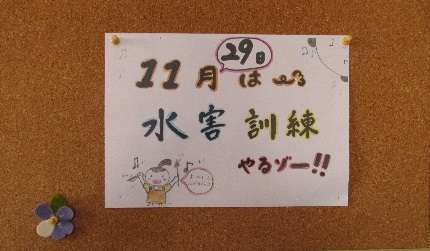 29日
11月は
水害訓練
やるゾー!!